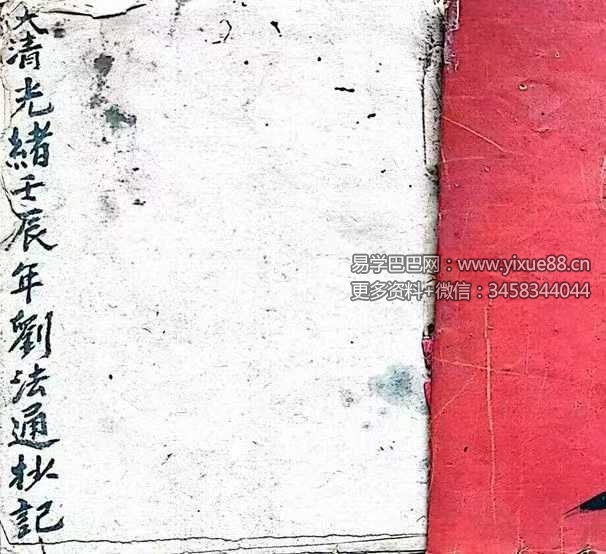 大清光緒壬辰年劉法通抄記
易学巴巴网：www.yixue88.cn
更多资料+微信：3458344044